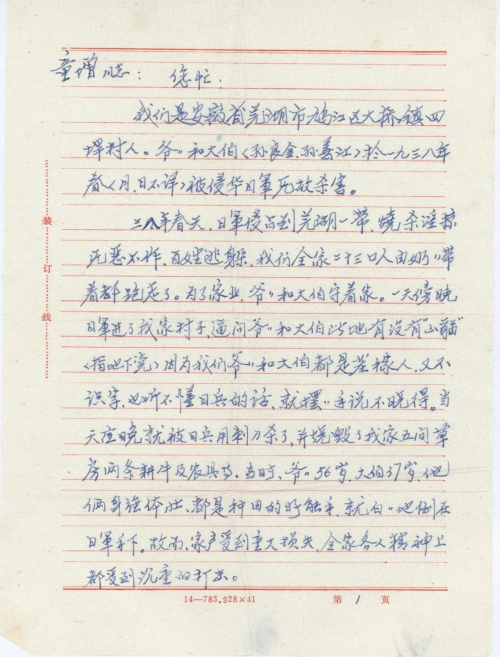 童增同志：您忙！
我们是安徽省芜湖市鸠江区大桥镇四
村人。爷〃和大伯〈孙良金、孙善江〉于一九三八年
春〈月、日不详〉被侵华日军无故杀害。
三八年春天，日军侵占到芜湖一带，烧杀淫掠
无恶不作，百姓逃躲，我们全家二十三口人由奶〃带
着都跑走了。为了家业，爷〃和大伯守着家。一天傍晚
日军进了我家村子，逼问爷〃和大伯此地有没有
〈指地下党〉因为我们爷〃和大伯都是庄稼人，又不
识字，也听不懂日兵的话，就摆〃手说不晓得。当
天夜晚就被日兵用刺刀杀了，并烧毁了我家五间草
房两条耕牛及农具等。当时，爷〃56岁，大伯37岁，他
俩身强体壮，都是种田的好能手，就白〃地倒在
日军手下。故而，家产受到重大损失，全家各人精神上
都受到沉重的打击。
装
订
线
14—783.928×41
第 1 页